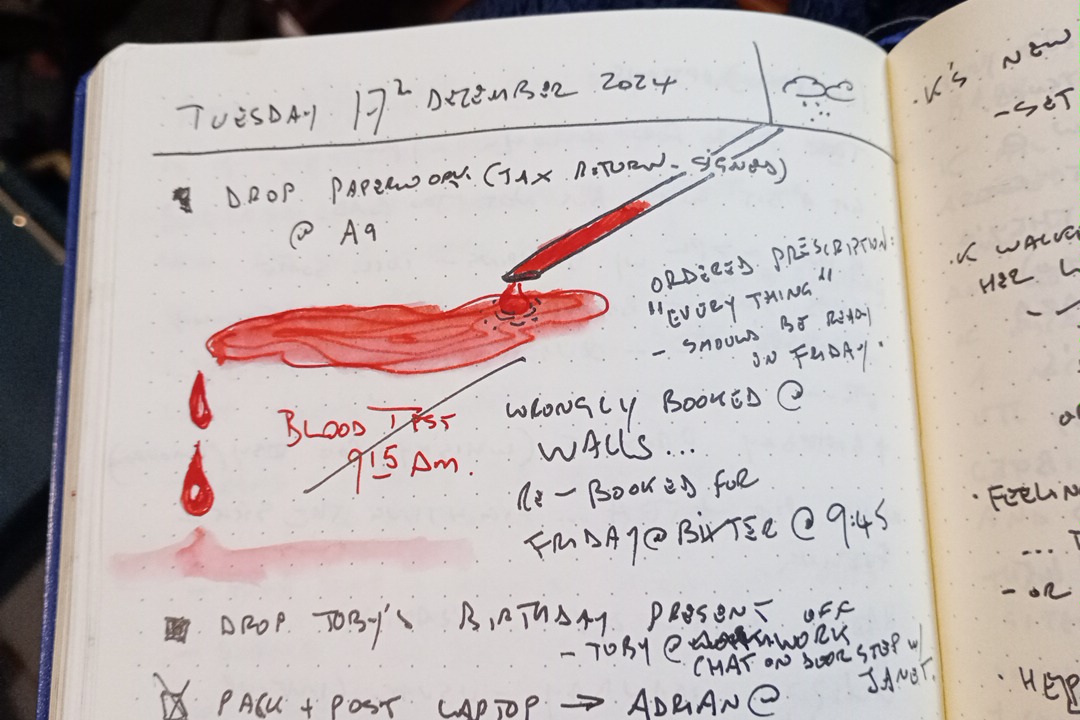 TUESDAY 17ᵗʰ DEZEMBER 2024
DROP PAPERWORK (TAX RETURN - SIGNED)
@ A9
ORDERED PRESCRIPTION:
"EVERY THING"
- SHOULD BE READY
ON FRIDAY.
BLOOD TEST
915 Am.
WRONGLY BOOKED @
WALLS...
RE-BOOKED FOR
FRIDAY @ BIXTER @ 9:45
DROP TOBY'S BIRTHDAY PRESENT OFF
- TOBY @ WORK
CHAT ON DOOR STEP w/
JANET.
PACK + POST LAPTOP → ADRIAN @
· K'S NEW
- SET
· K WALKE
HER
· FEELIN
...
- OR
· HELP